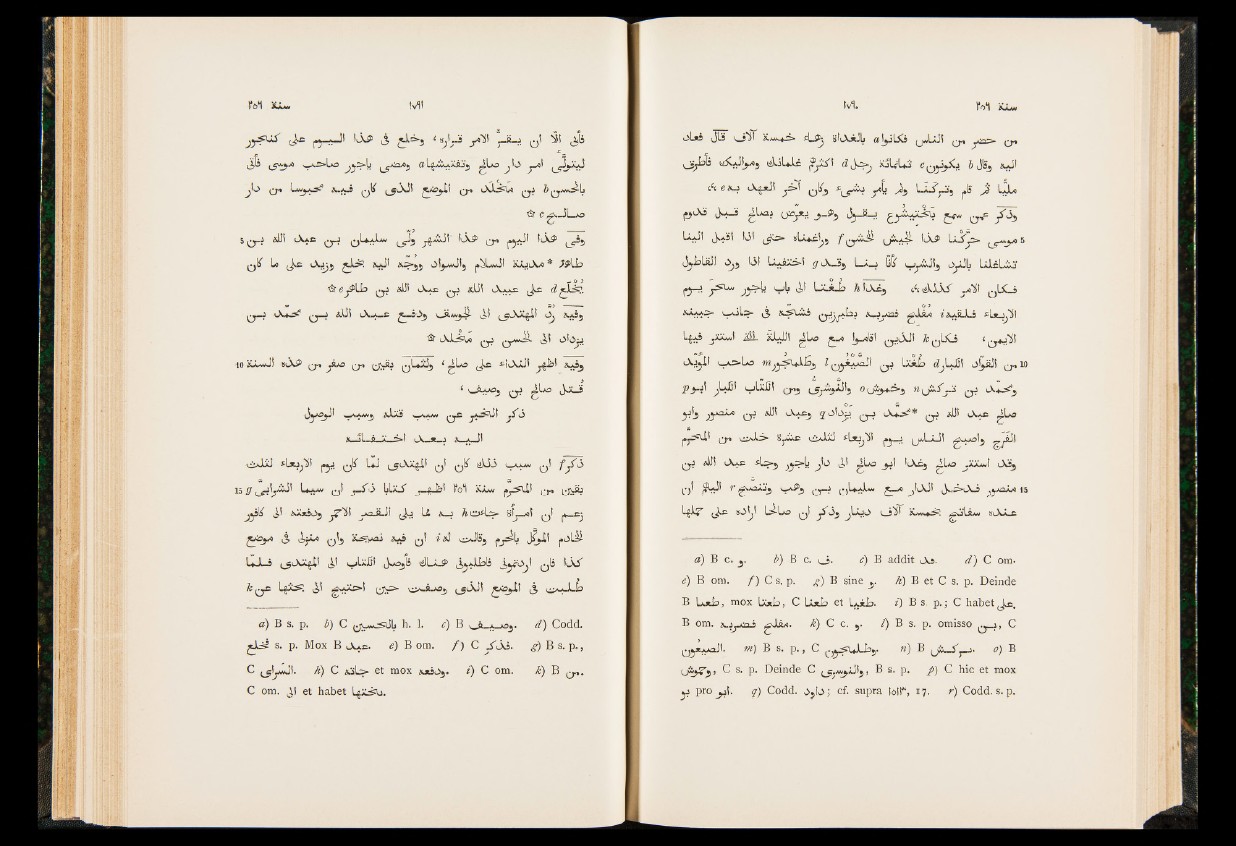 سنة ٢٥٦ ١٧٩٠
من حضر من الناس فكانوا a بالغداة زهاء خمسة آلاف قال فعاد
اليه b وقال يكونون c ثمانمائة رجل d اكثرهم غلمانك ومواليك فأطرق
مليّا ثم قام وتركنا ولم يأمر بشيء وكان آخر العهد به e ۞
وذُكر عمن سمع بختيشوع يقول وهو يعرّض بصالح قبل قدوم
5 موسى حرّكنا هذا الجيش الخشن f وارغمناه حتى اذا اقبل الينا
تشاغلنا بالنرد والشرب كأنّا بنا وقد g اختفينا اذا ورد القاطول
فكان الامر كذلك ۞ وغدا h طغتا الى باب ياجور سحر يوم
الاربعاء فلقيه i مفلح فضربه بطبرزين فشجّه في جانب جبينه
الايمن، فكان k الذين اقاموا مع صالح الليلة التي استتر فيها
10 من القوّاد الكبار d طغتا بن الصيغون l وطلمجور m صاحب المؤيّد
ومحمد بن تركش n وخموش o والنوشرى ومن الكتّاب الكبار ابو p
صالح عبد الله بن محمّد* بن يزداد q وعبد الله بن منصور وابو
الفرج واصبح الناس يوم الاربعاء لثلث عشرة خلت من المحرّم
وقد استتر صالح وغدا ابو صالح الى دار ياجور وجاء عبد الله بن
15 منصور فدخل الدار مع سليمان بن وهب وتنصّح r اليهم ان
عنده سفاتج بخمسة آلاف دينار وذكر ان صالحا اراده على حملها
a) B c. و. b) B c. ف. c) B addit قد. d) C om.
e) B om. f) C s. p. g) B sine و. h) B et C s. p. Deinde
B طعنا, mox طعنا, C طعنا et طغيها. i) B s. p.; C habet على.
B om. مفلح فضربه. k) C c. و. l) B s. p. omisso بن, C
الصيعون. m) B s. p., C وطلمجون. n) B بركش. o) B
وحموش, C s. p. Deinde C والنوسرى, B s. p. p) C hic et mox
بو pro ابو. q) Codd. داود; cf. supra ١٥١٣, 17. r) Codd. s. p.
سنة ٢٥٦ ١٧٩١
فأبى الّا ان يقرّ الامر قراره، وخلع في هذا اليوم على كنجور
ليتولّى امر دار صالح وتفتيشها a ومضى ياجور صاحب موسى فأتى
بالحسن b بن مخلد من الموضع الذى كان فيه محبوسا من دار
صالح c ۞
5 وفى هذا اليوم من هذا الشهر ولّى سليمان بن عبد الله بن
طاهر * مدينة السلام والسواد ووجّه اليه بخلع وزيد على ما كان
يُخلع d على عبيد الله بن عبد الله بن طاهر e ۞
وفيه رُدّ المهتدى الى الجوسق ودفع عبد الله بن محمّد بن
يزداد الى الحسن بن مخلد ۞
10 وفيه اظهر النداء على صالح، ولثمان بقين من صفر من هذه السنة
قتل صالح بن وصيف،
ذكر الخبر عن سبب قتله وسبب الوصول
اليه بعد اختفائه
ذُكر f ان سبب ذلك كان ان المهتدى لمّا كان يوم الاربعاء لثلث
15 بقين من المحرّم سنة ٢٥٦ اظهر كتابا ذكر ان سيما الشرابى g
زعم ان امرأة جاءت h به مما يلى القصر الاحمر ودفعته الى كافور
الخادم الموكّل بالحرم وقالت له i ان فيه نصيحة وان منزلى فى موضع
كذا فان اردتمونى فاطلبونى هناك فأوصل الكتاب الى المهتدى فلمّا
طلبت فى الموضع الذى وصفت حين احتيج الى بحثها عن k
a) B s. p. b) C بالحسين h. l. c) B وصيف. d) Codd.
فخلع s. p. Mox B عبد. e) B om. f) C فذكر. g) B s. p.,
C السرابى. h) C جاته et mox ودفعه. i) C om. k) B من.
C om. الى et habet بحثتها.